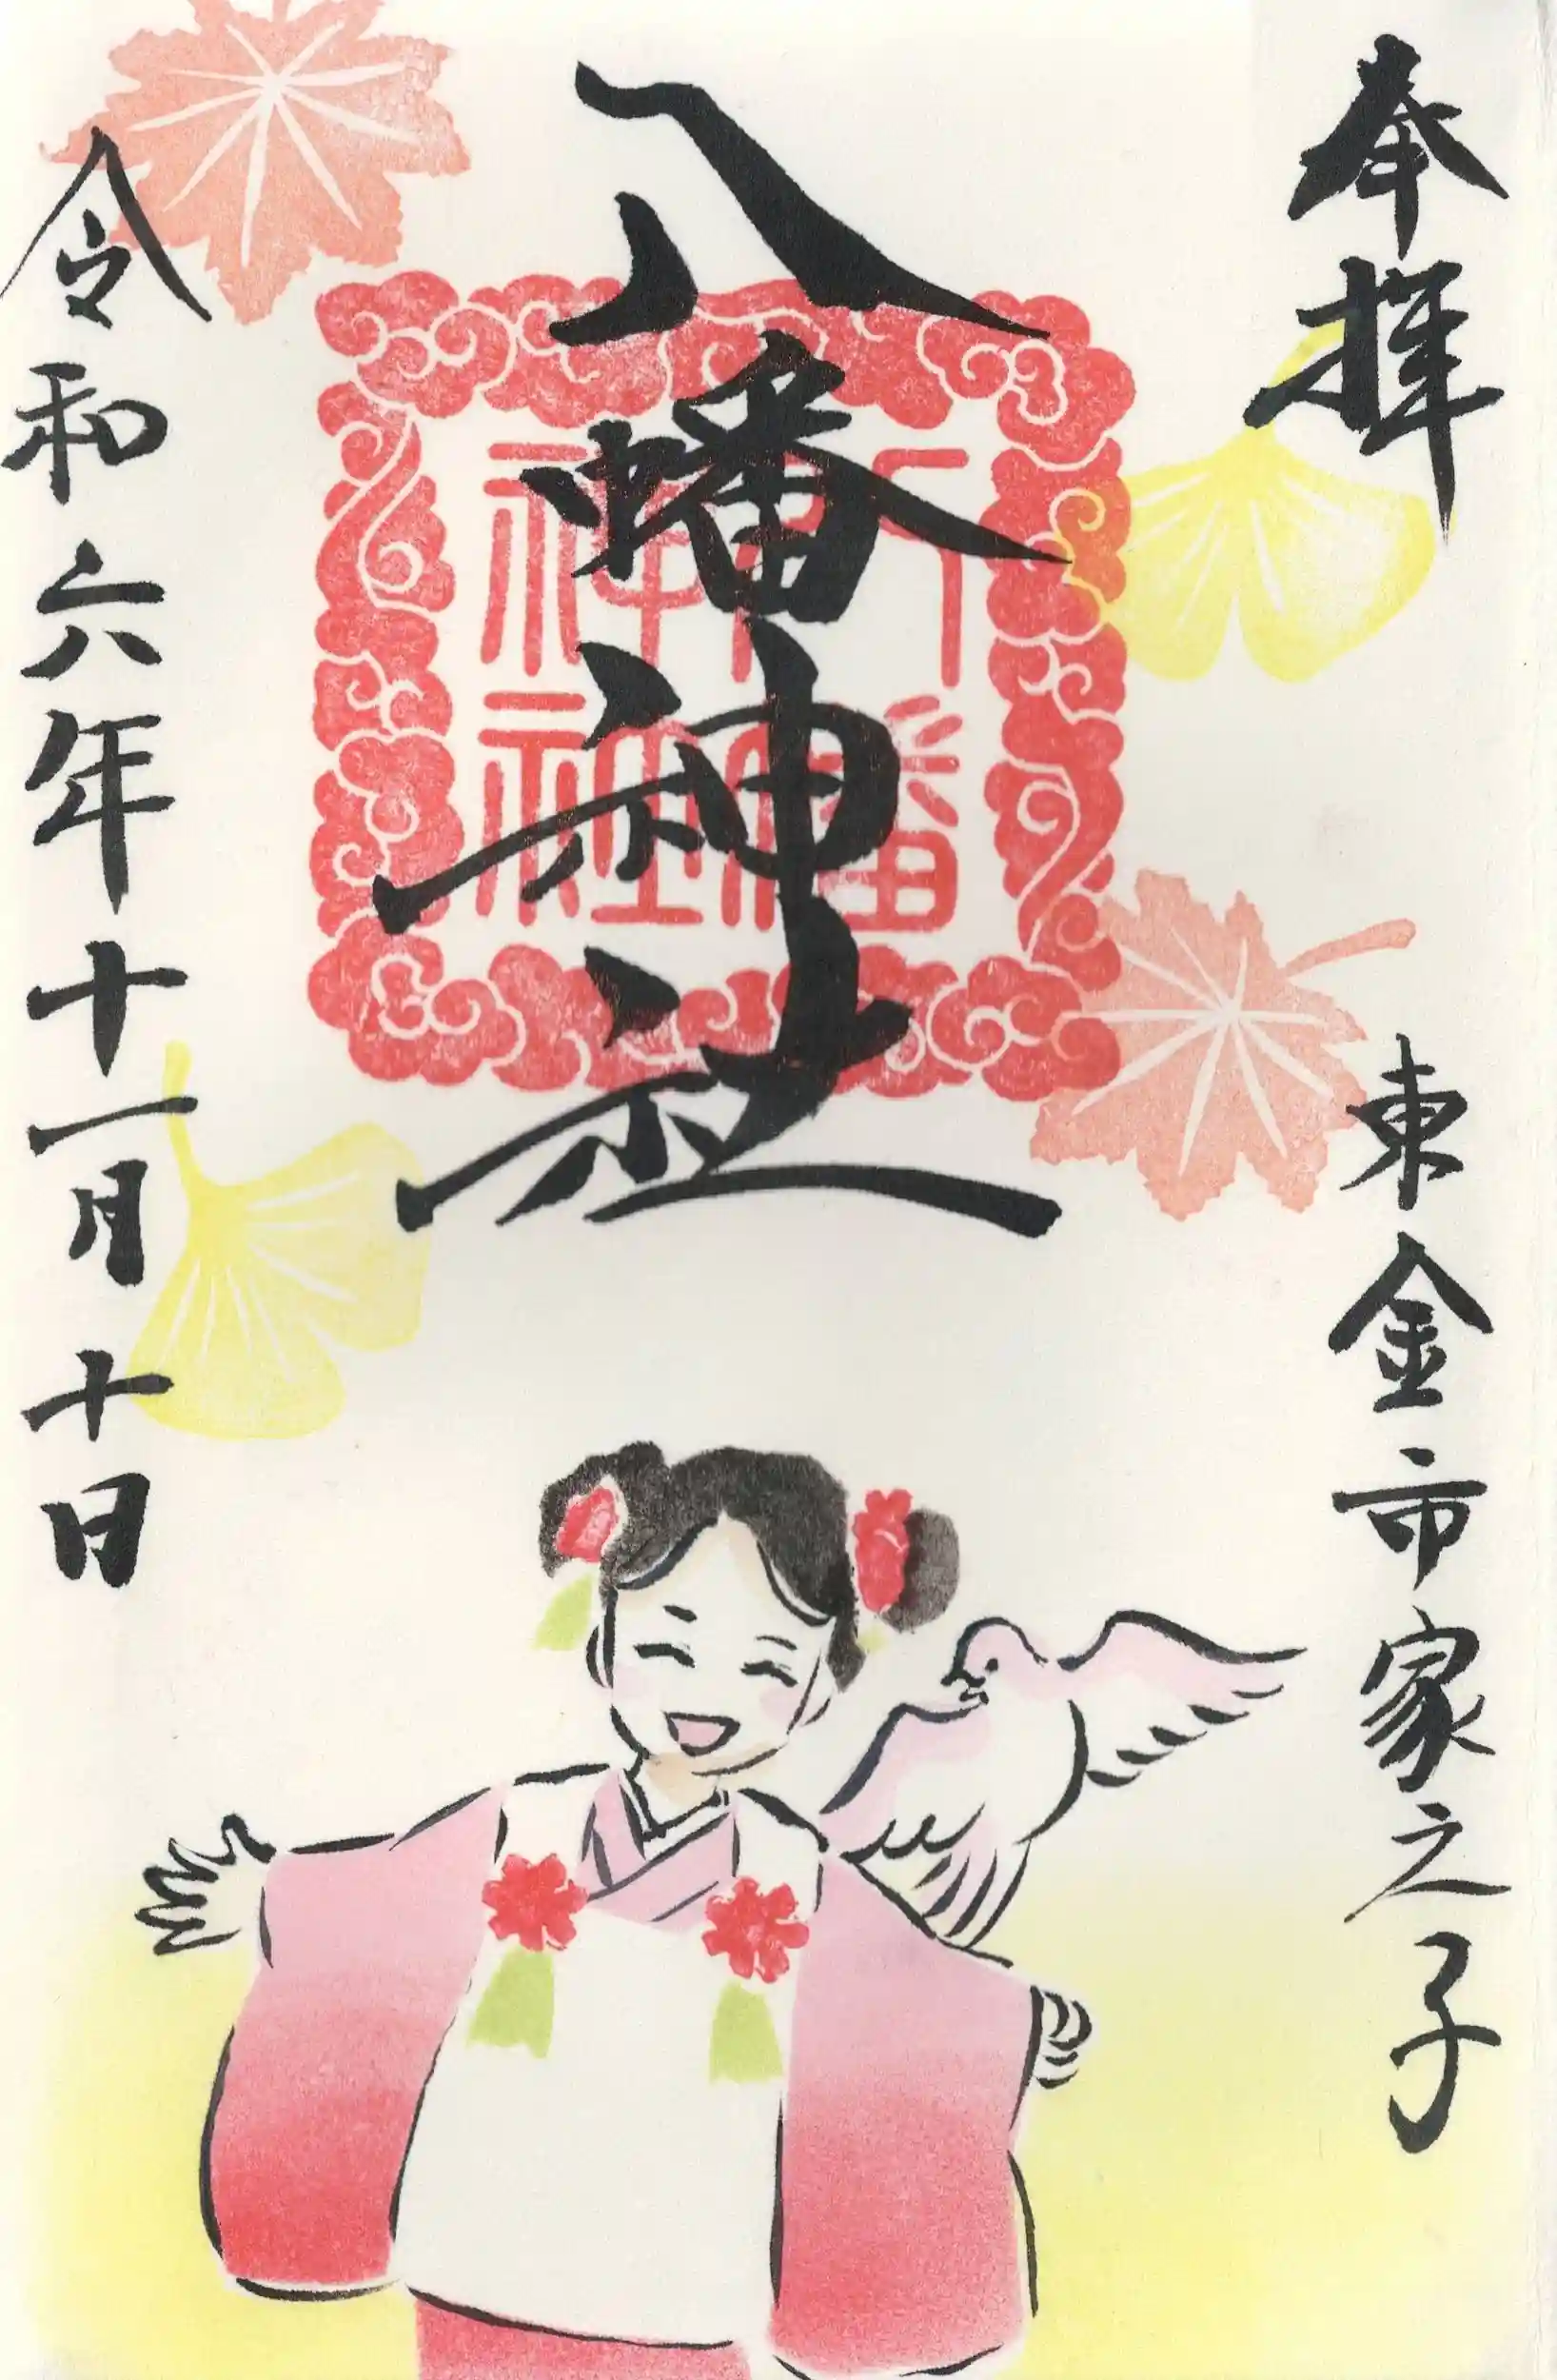 奉拝
東金市家之子
八幡神社
八幡神社
令和六年十一月十日